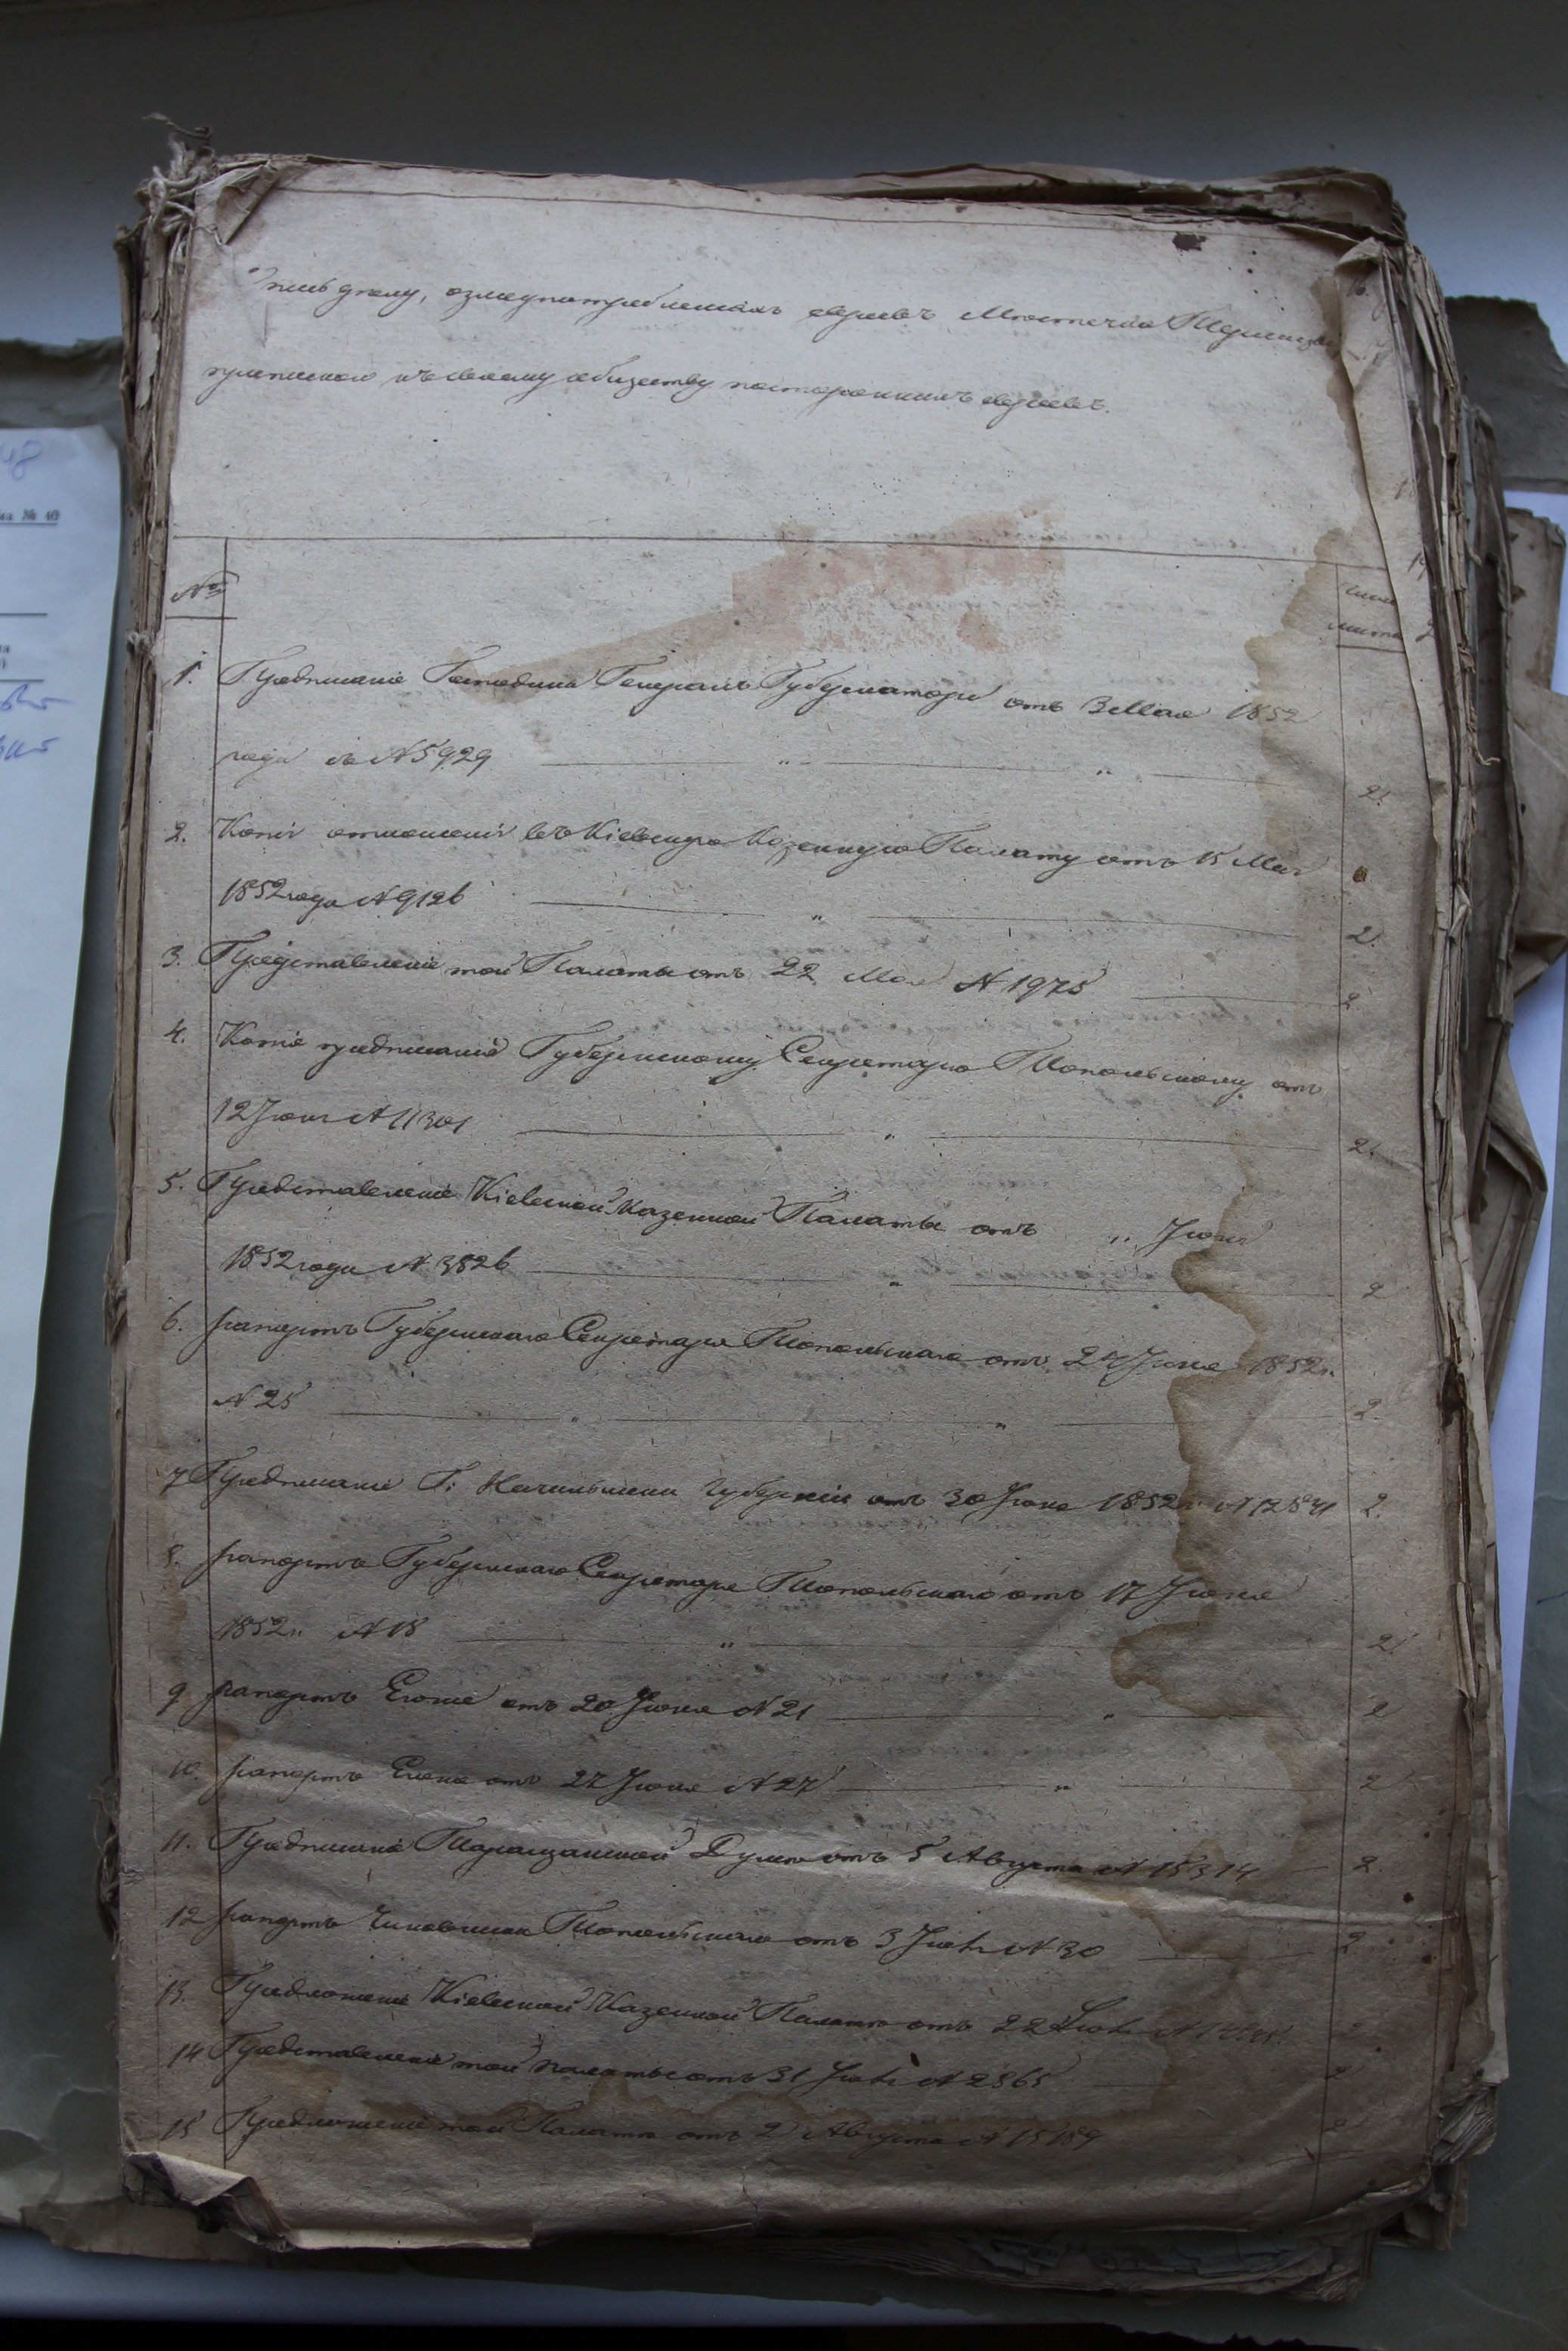 Опись делу, о злоупотребленіяхъ евреевъ Местечка
припискою къ своему обществу постороннихъ евреевъ.
№
листа
1. Предписаніе Господина Генералъ Губернатора отъ 3 Мая 1852
года за №5929 2.
2. Копія отношенія въ Кіевскую Казенную Палату отъ 15 Мая
1852 года №9126 2.
3. Представленіе той Палаты отъ 22 Мая №1975 2
4. Копія предписанія Губернскому Секретарю Топольскому отъ
12 Іюня №11301 2.
5. Представленіе Кіевской Казенной Палаты отъ „ Іюня
1852 года №3826 2
6. рапортъ Губернскаго Секретаря Топольскаго отъ 24 Іюня 1852 г.
№25 2.
7 Предписаніе Г: Начальника Губерніи отъ 30 Іюня 1852 г. 2.
8. рапортъ Губернскаго Секретаря Топольскаго отъ 17 Іюня
1852 г. №18 2
9 рапортъ Егоже отъ 20 Іюня №21 2
10. рапортъ Егоже отъ 27 Іюня №27 2
11. Предписаніе Таращанской Думѣ отъ 5 Августа №15314 2.
12 рапортъ Чиновника Топольскаго отъ 3 Іюля №30 2
13. Предложеніе Кіевской Казенной Палатѣ отъ 22 Іюля
14 Представленіе той палаты отъ 31 Іюля №2865 2
15 Предложеніе той Палатѣ отъ 2 Августа №15159 2